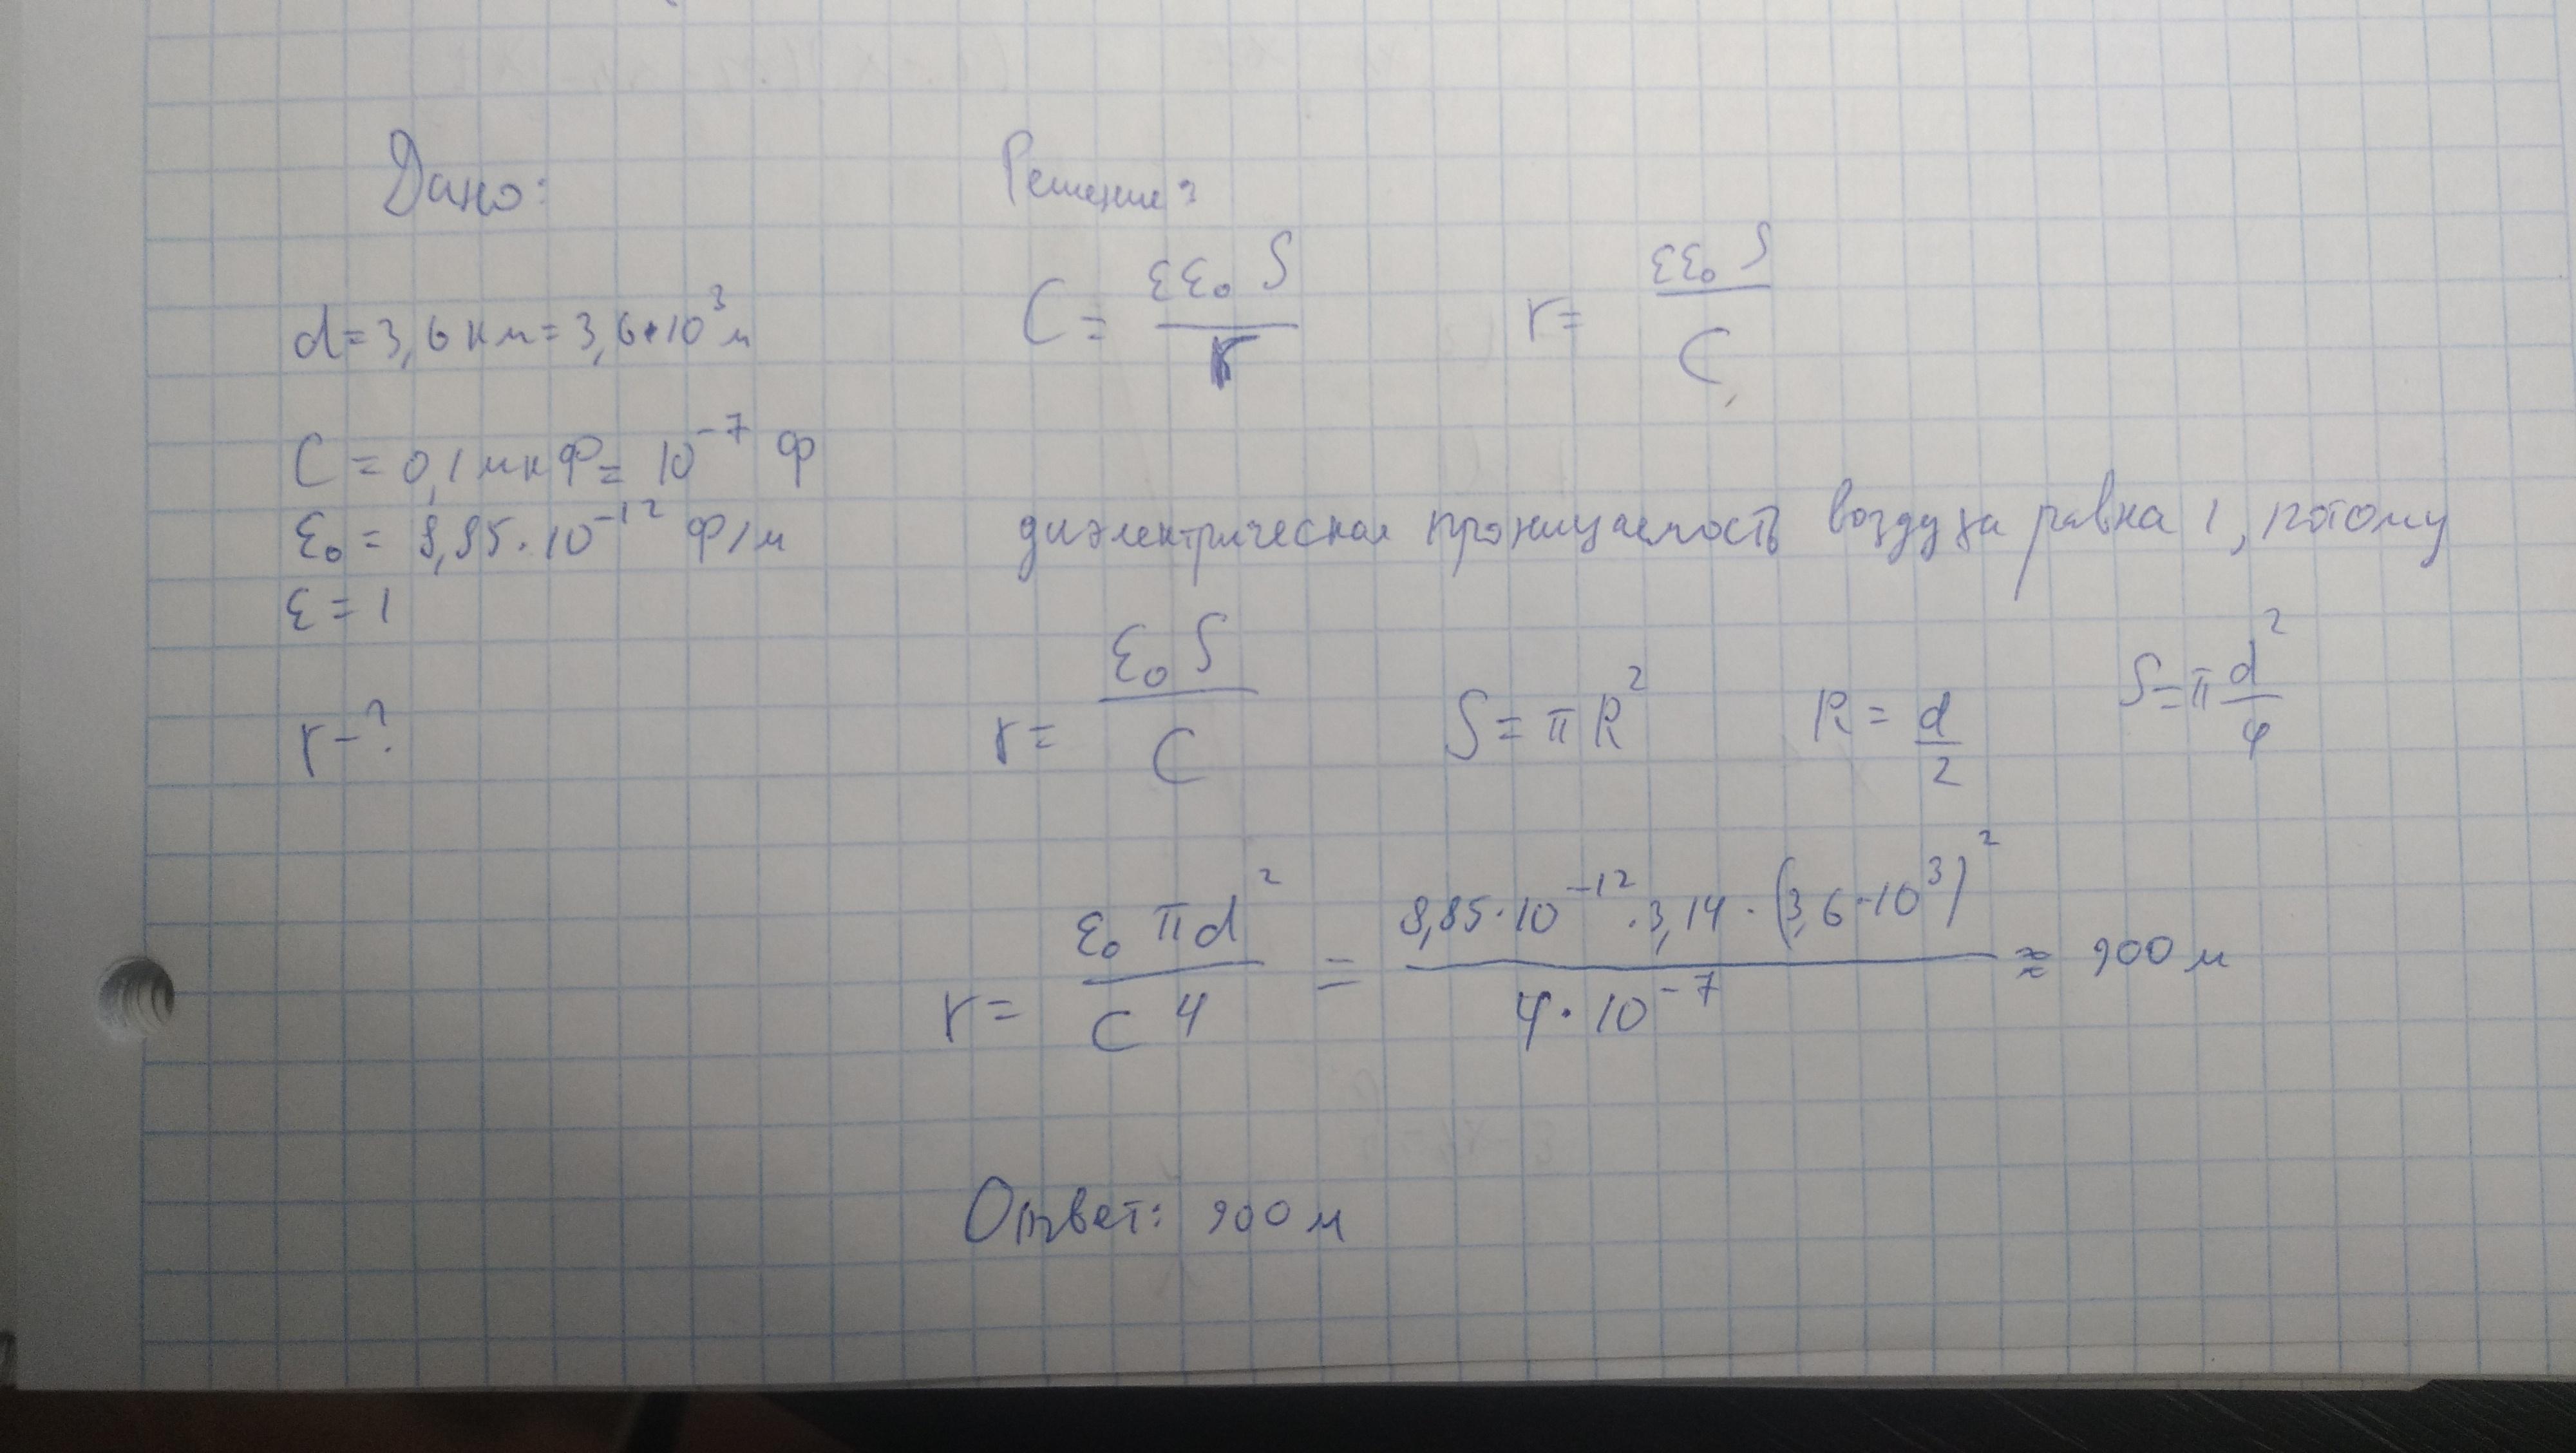 Дано:
d = 3,6 км = 3,6 • 10³ м
C = 0,1 мкФ = 10⁻⁷ Ф
ε₀ = 8,85 · 10⁻¹² Ф/м
ε = 1
r - ?
Решение:
C = εε₀ S / r
r = εε₀ S / C
диэлектрическая проницаемость воздуха равна 1, потому
r = ε₀ S / C
S = π R²
R = d / 2
S = π d² / 4
r = ε₀ π d² / C 4 = 8,85 · 10⁻¹² · 3,14 · (3,6 · 10³)² / 4 · 10⁻⁷ ≈ 900 м
Ответ: 900 м